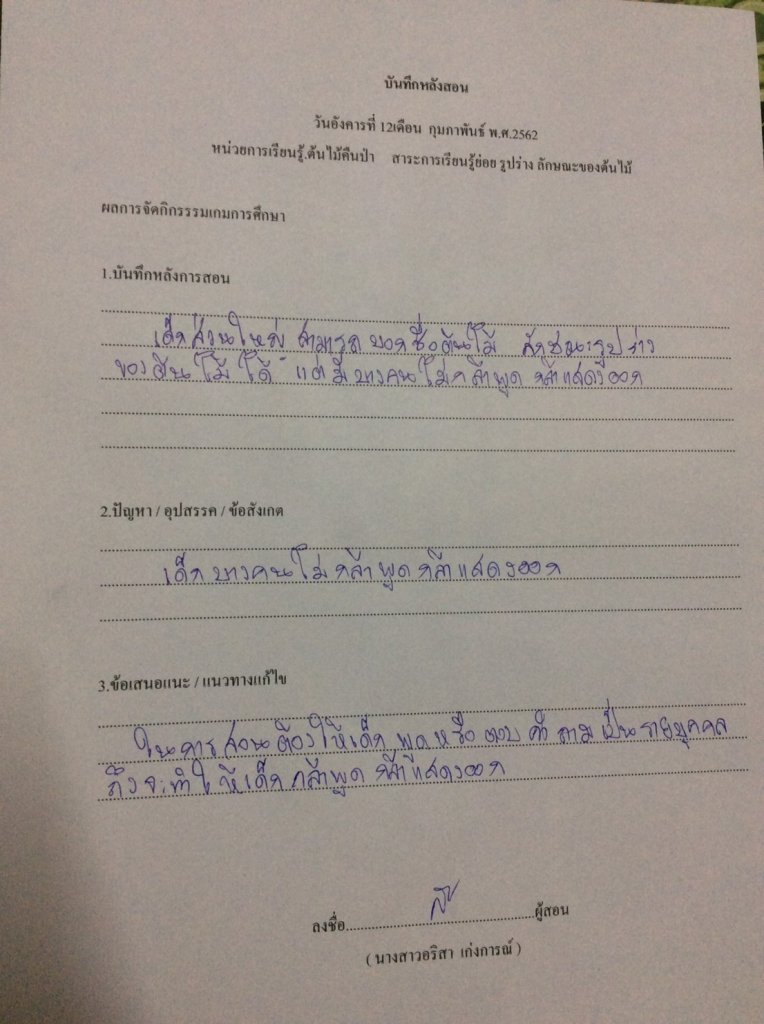 บันทึกหลังสอน
วันอังคารที่ 12เดือน กุมภาพันธ์ พ.ศ.2562
หน่วยการเรียนรู้.ต้นไม้คืนป่า สาระการเรียนรู้ย่อย รูปร่าง ลักษณะของต้นไม้
ผลการจัดกิกรรรมเกมการศึกษา
1.บันทึกหลังการสอน
เด็กส่วนใหญ่ สามารถ บอกชื่อต้นไม้ ลักษณะรูปร่าง
ของต้นไม้ ได้ แต่ มี บางคนไม่กล้าพูด กล้าแสดงออก
2.ปัญหา / อุปสรรค / ข้อสังเกต
เด็กบางคนไม่กล้าพูด กล้าแสดงออก
3.ข้อเสนอแนะ / แนวทางแก้ไข
ในการสอนต้องให้เด็ก พูดหรือ ตอบ คำ ถามเป็นรายบุคคล
ถึงจะทำให้เด็กกล้าพูด กล้าแสดงออก
ลงชื่อ.................................................ผู้สอน
( นางสาวอริสา เก่งการณ์ )